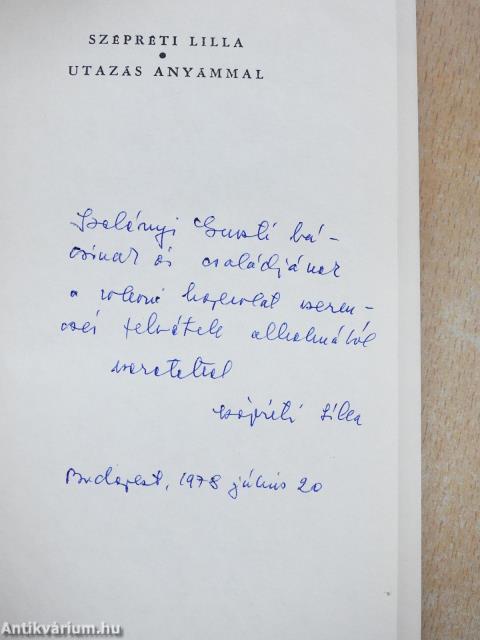 SZÉPRÉTI LILLA
•
UTAZÁS ANYÁMMAL
Guszti bá-
csinak és családjának
a rokoni kapcsolat szeren-
csés felvétele alkalmából
szeretettel
Szépréti Lilla
Budapest, 1978 július 20
Antikvárium.hu